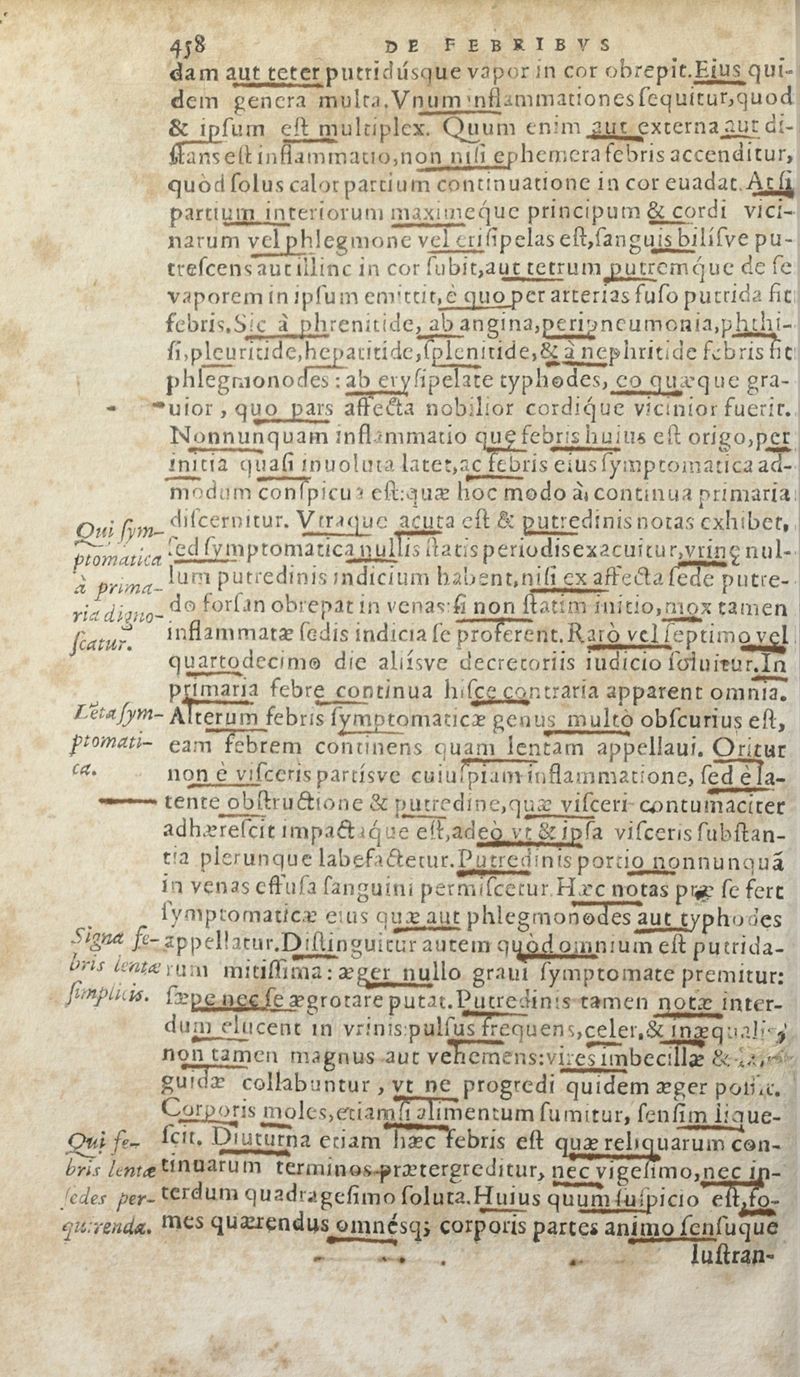 458 DE FEBRIBVS
dam aut teter putridusque vapor in cor obrepit. Eius qui-
dem genera multa. Vnum inflammationes sequitur, quod
& ipsum est multiplex. Quum enim aut externa aut di-
stans est inflammatio, non nisi ephemera febris accenditur,
quòd solus calor partium continuatione in cor euadat. At si
partium interiorum maximeque principum & cordi vici-
narum vel phlegmone vel erisipelas est, sanguis bilisve pu-
trescens aut illinc in cor subit, aut tetrum putremque de se
vaporem in ipsum emittit, è quo per arterias fuso putrida fit
febris. Sic à phrenitide, ab angina, peripneumonia, phthi-
si, pleuritide, hepatitide, splenitide, & à nephritide febris fit
phlegmonodes: ab erysipelate typhodes, eo quæque gra-
uior, quo pars affecta nobilior cordique vicinior fuerit.
Nonnunquam inflammatio quę febris huius est origo, per
initia quasi inuoluta latet, ac febris eius symptomatica ad-
modum conspicua est: quæ hoc modo à continua primaria
Qui sym- discernitur. Vtraque acuta est & putredinis notas exhibet,
ptomatica sed symptomatica nullis statis periodis exacuitur, vrinę nul-
à prima- lum putredinis indicium habent, nisi ex affecta sede putre-
ria digno- do forsan obrepat in venas: si non statim initio, mox tamen
scatur. inflammatæ sedis indicia se proferent. Rarò vel septimo vel
quartodecimo die aliisve decretoriis iudicio soluitur. In
primaria febre continua hisce contraria apparent omnia.
Leta sym- Alterum febris symptomaticæ genus multò obscurius est,
ptomati- eam febrem continens quam lentam appellaui. Oritur
ca. non è visceris partisve cuiuspiam inflammatione, sed è la-
tente obstructione & putredine, quæ visceri contumaciter
adhærescit impactaque est, adeò vt & ipsa visceris substan-
tia plerunque labefactetur. Putredinis portio nonnunquã
in venas effusa sanguini permiscetur. Hæc notas præ se fert
symptomaticæ eius quæ aut phlegmonodes aut typhodes
Signa fe- appellatur. Distinguitur autem quòd omnium est putrida-
bris lentæ rum mitissima: æger nullo graui symptomate premitur:
simplicis. sæpe nec se ægrotare putat. Putredinis tamen notæ inter-
dum elucent in vrinis: pulsus frequens, celer, & inæqualis,
non tamen magnus aut vehemens: vires imbecillæ &
guidæ collabuntur, vt ne progredi quidem æger possit.
Corporis moles, etiamsi alimentum sumitur, sensim lique-
Qui fe- scit. Diuturna etiam hæc febris est quæ reliquarum con-
bris lentæ tinuarum terminos prætergreditur, nec vigesimo, nec in-
sedes per- terdum quadragesimo soluta. Huius quum suspicio est, fo-
quirenda. mes quærendus omnésq; corporis partes animo sensuque
lustran-